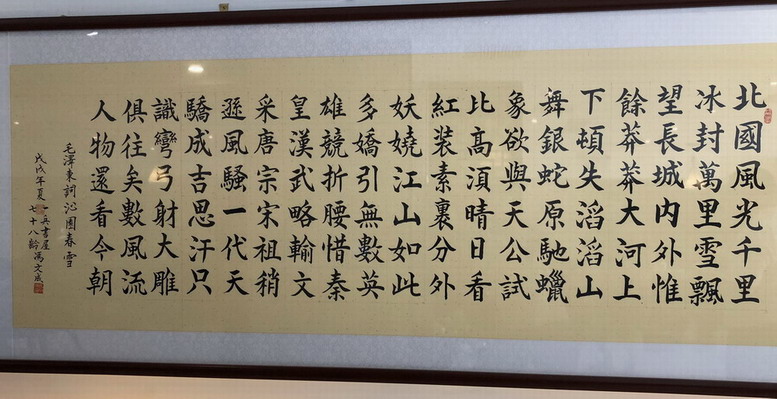 北國風光千里
冰封萬里雪飄
望長城内外惟
餘莽莽大河上
下頓失滔滔山
舞銀蛇原馳蠟
象欲與天公試
比高湏晴日看
紅装素裹分外
妖嬈江山如此
多嬌引無數英
雄競折腰惜秦
皇漢武略輸文
采唐宗宋祖稍
遜風騷一代天
驕成吉思汗只
識彎弓射大雕
俱往矣數風流
人物還看今朝
毛澤東詞沁園春雪
戊戌年夏
書屋
七十八齡馮文